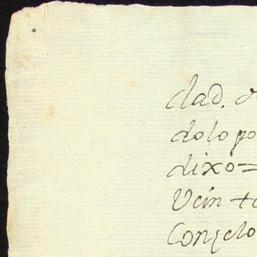 dad. d
dolo po
dixo=
Vein te
Conçelo